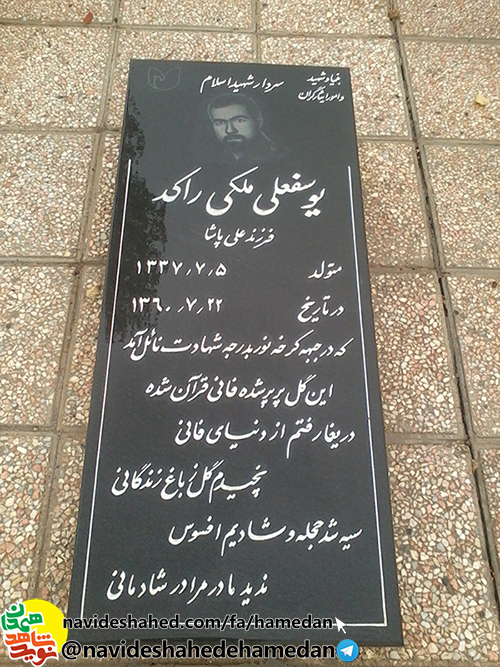 بنیاد شهید
و امور ایثارگران
سردار شهید اسلام
یوسفعلی ملکی راکد
فرزند علی پاشا
متولد ۱۳۳۷٫۷٫۵
در تاریخ ۱۳۶۰٫۷٫۲۲
که در جبهه کرخه نور بدرجه شهادت نائل آمد
این گل پرپر شده فانی قرآن شده
دریغا رفتم از دنیای فانی
نچیدم گل ز باغ زندگانی
سیه شد حجله و شادیم افسوس
ندید مادر مرا در شادمانی
نوید شاهد همدان
navideshahed.com/fa/hamedan
@navideshahedehamedan